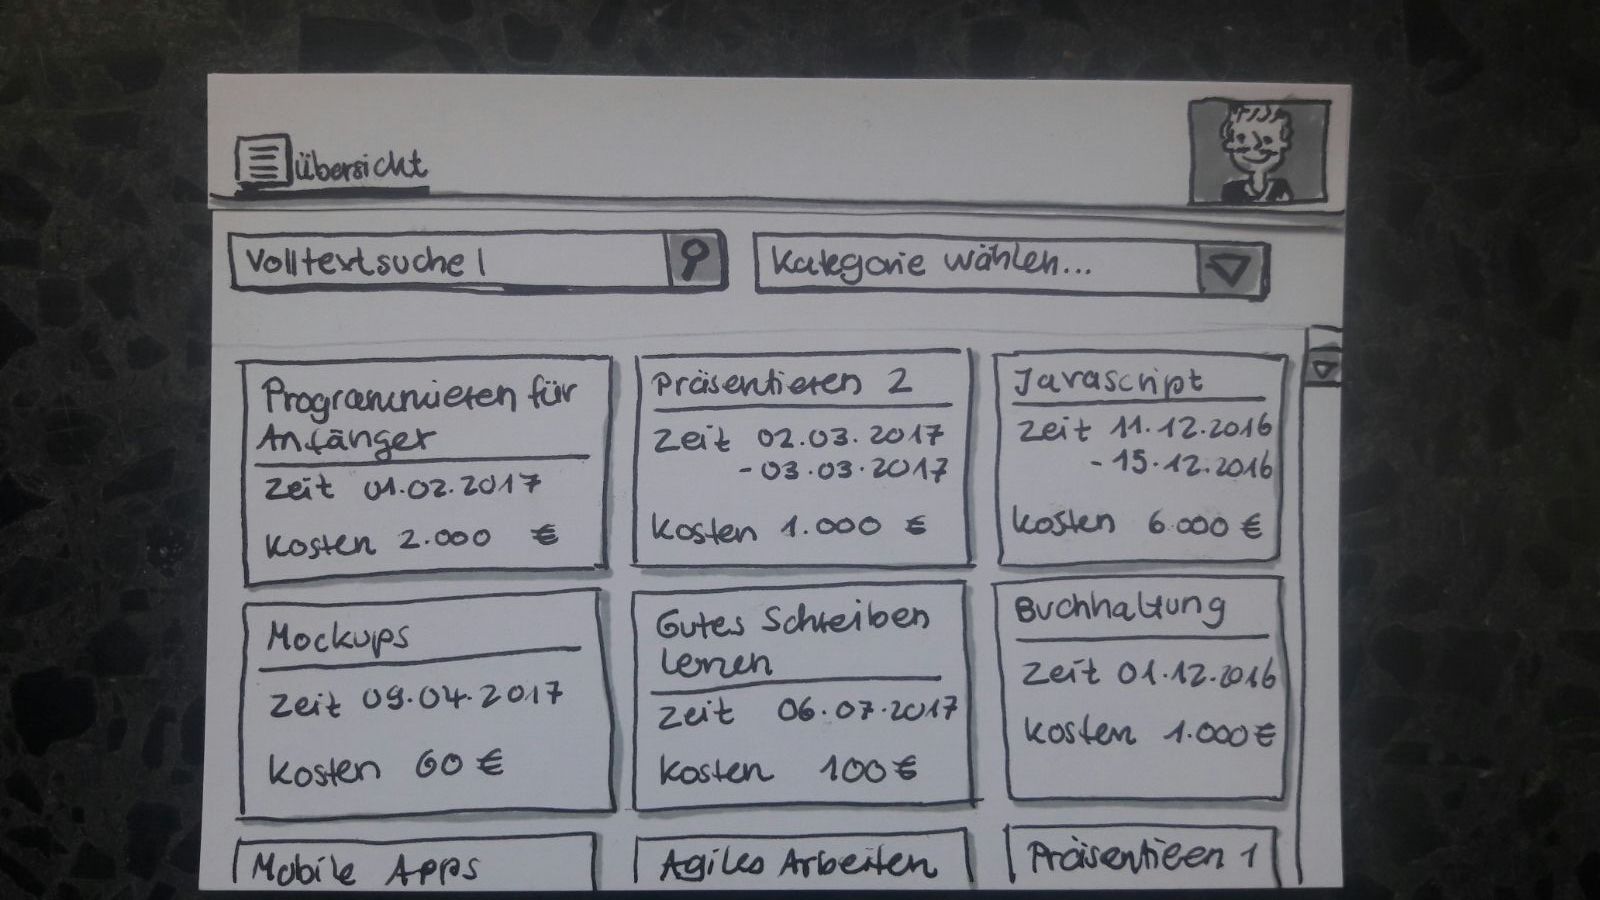 Übersicht
Volltextsuche
Kategorie wählen...
Programmieren für
Anfänger
Zeit 01.02.2017
Kosten 2.000 €
Präsentieren 2
Zeit 02.03.2017
-03.03.2017
Kosten 1.000 €
Javascript
Zeit 11.12.2016
-15.12.2016
Kosten 6.000 €
Mockups
Zeit 09.04.2017
Kosten 60 €
Gutes Schreiben
lernen
Zeit 06.07.2017
Kosten 100 €
Buchhaltung
Zeit 01.12.2016
Kosten 1.000 €
Mobile Apps
Agiles Arbeiten
Präsentieen 1